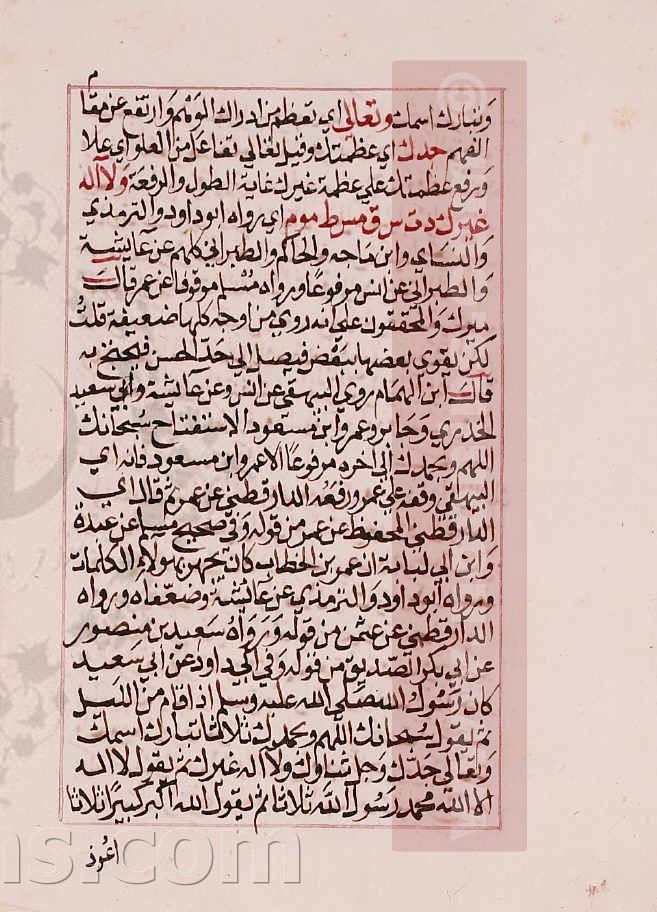 م
وتبارك اسمك وتعالى اي تعظم من ادراك الوهم وارتفع عن مقا
الفهم جدك اي عظمتك وقيل تعالى تفاعل من العلو اي علا
ورفع عظمتك على عظمة غيرك غاية الطول والرفعة ولا اله
غيرك دت س ق مس ط موم اي رواه ابو داود والترمذي
والنساي وابن ماجه والحاكم والطبراني كلهم عن عايشة
والطبراني عن انس مرفوعا ورواه مسلم موقوفا عن عمر قال
ميرك والمحققون على انه روي من اوجه كلها ضعيفة قلت
لكن يقوي بعضها ببعض فيصل الى حد الحسن فيحتج به
قال ابن الهمام روى البيهقي عن انس وعن عايشة وابي سعيد
الخدري وجابر وعمر وابن مسعود الاستفتاح سبحانك
اللهم وبحمدك الى اخره مرفوعا الا عمر وابن مسعود فانه اي
البيهقي وقفه على عمر ورفعه الدارقطني عن عمر ثم قال اي
الدارقطني المحفوظ عن عمر من قوله وفي صحيح مسلم عن عبدة
وابن ابي لبابة ان عمر بن الخطاب كان يجهر بهولاء الكلمات
ورواه ابو داود والترمذي عن عائشة وضعفاه ورواه
الدارقطني عن عثمن من قوله ورواه سعيد بن منصور
عن ابي بكر الصديق من قوله وفي ابي داود عن ابي سعيد
كان رسول الله صلى الله عليه وسلم اذا قام من الليل
ثم يقول سبحانك اللهم وبحمدك ثلاثا تبارك اسمك
وتعالى جدك وجل ثناوك ولا اله غيرك ثم يقول لا اله
الا الله محمد رسول الله ثلاثا ثم يقول الله اكبر كبيرا ثلاثا
اعوذ
ns.com